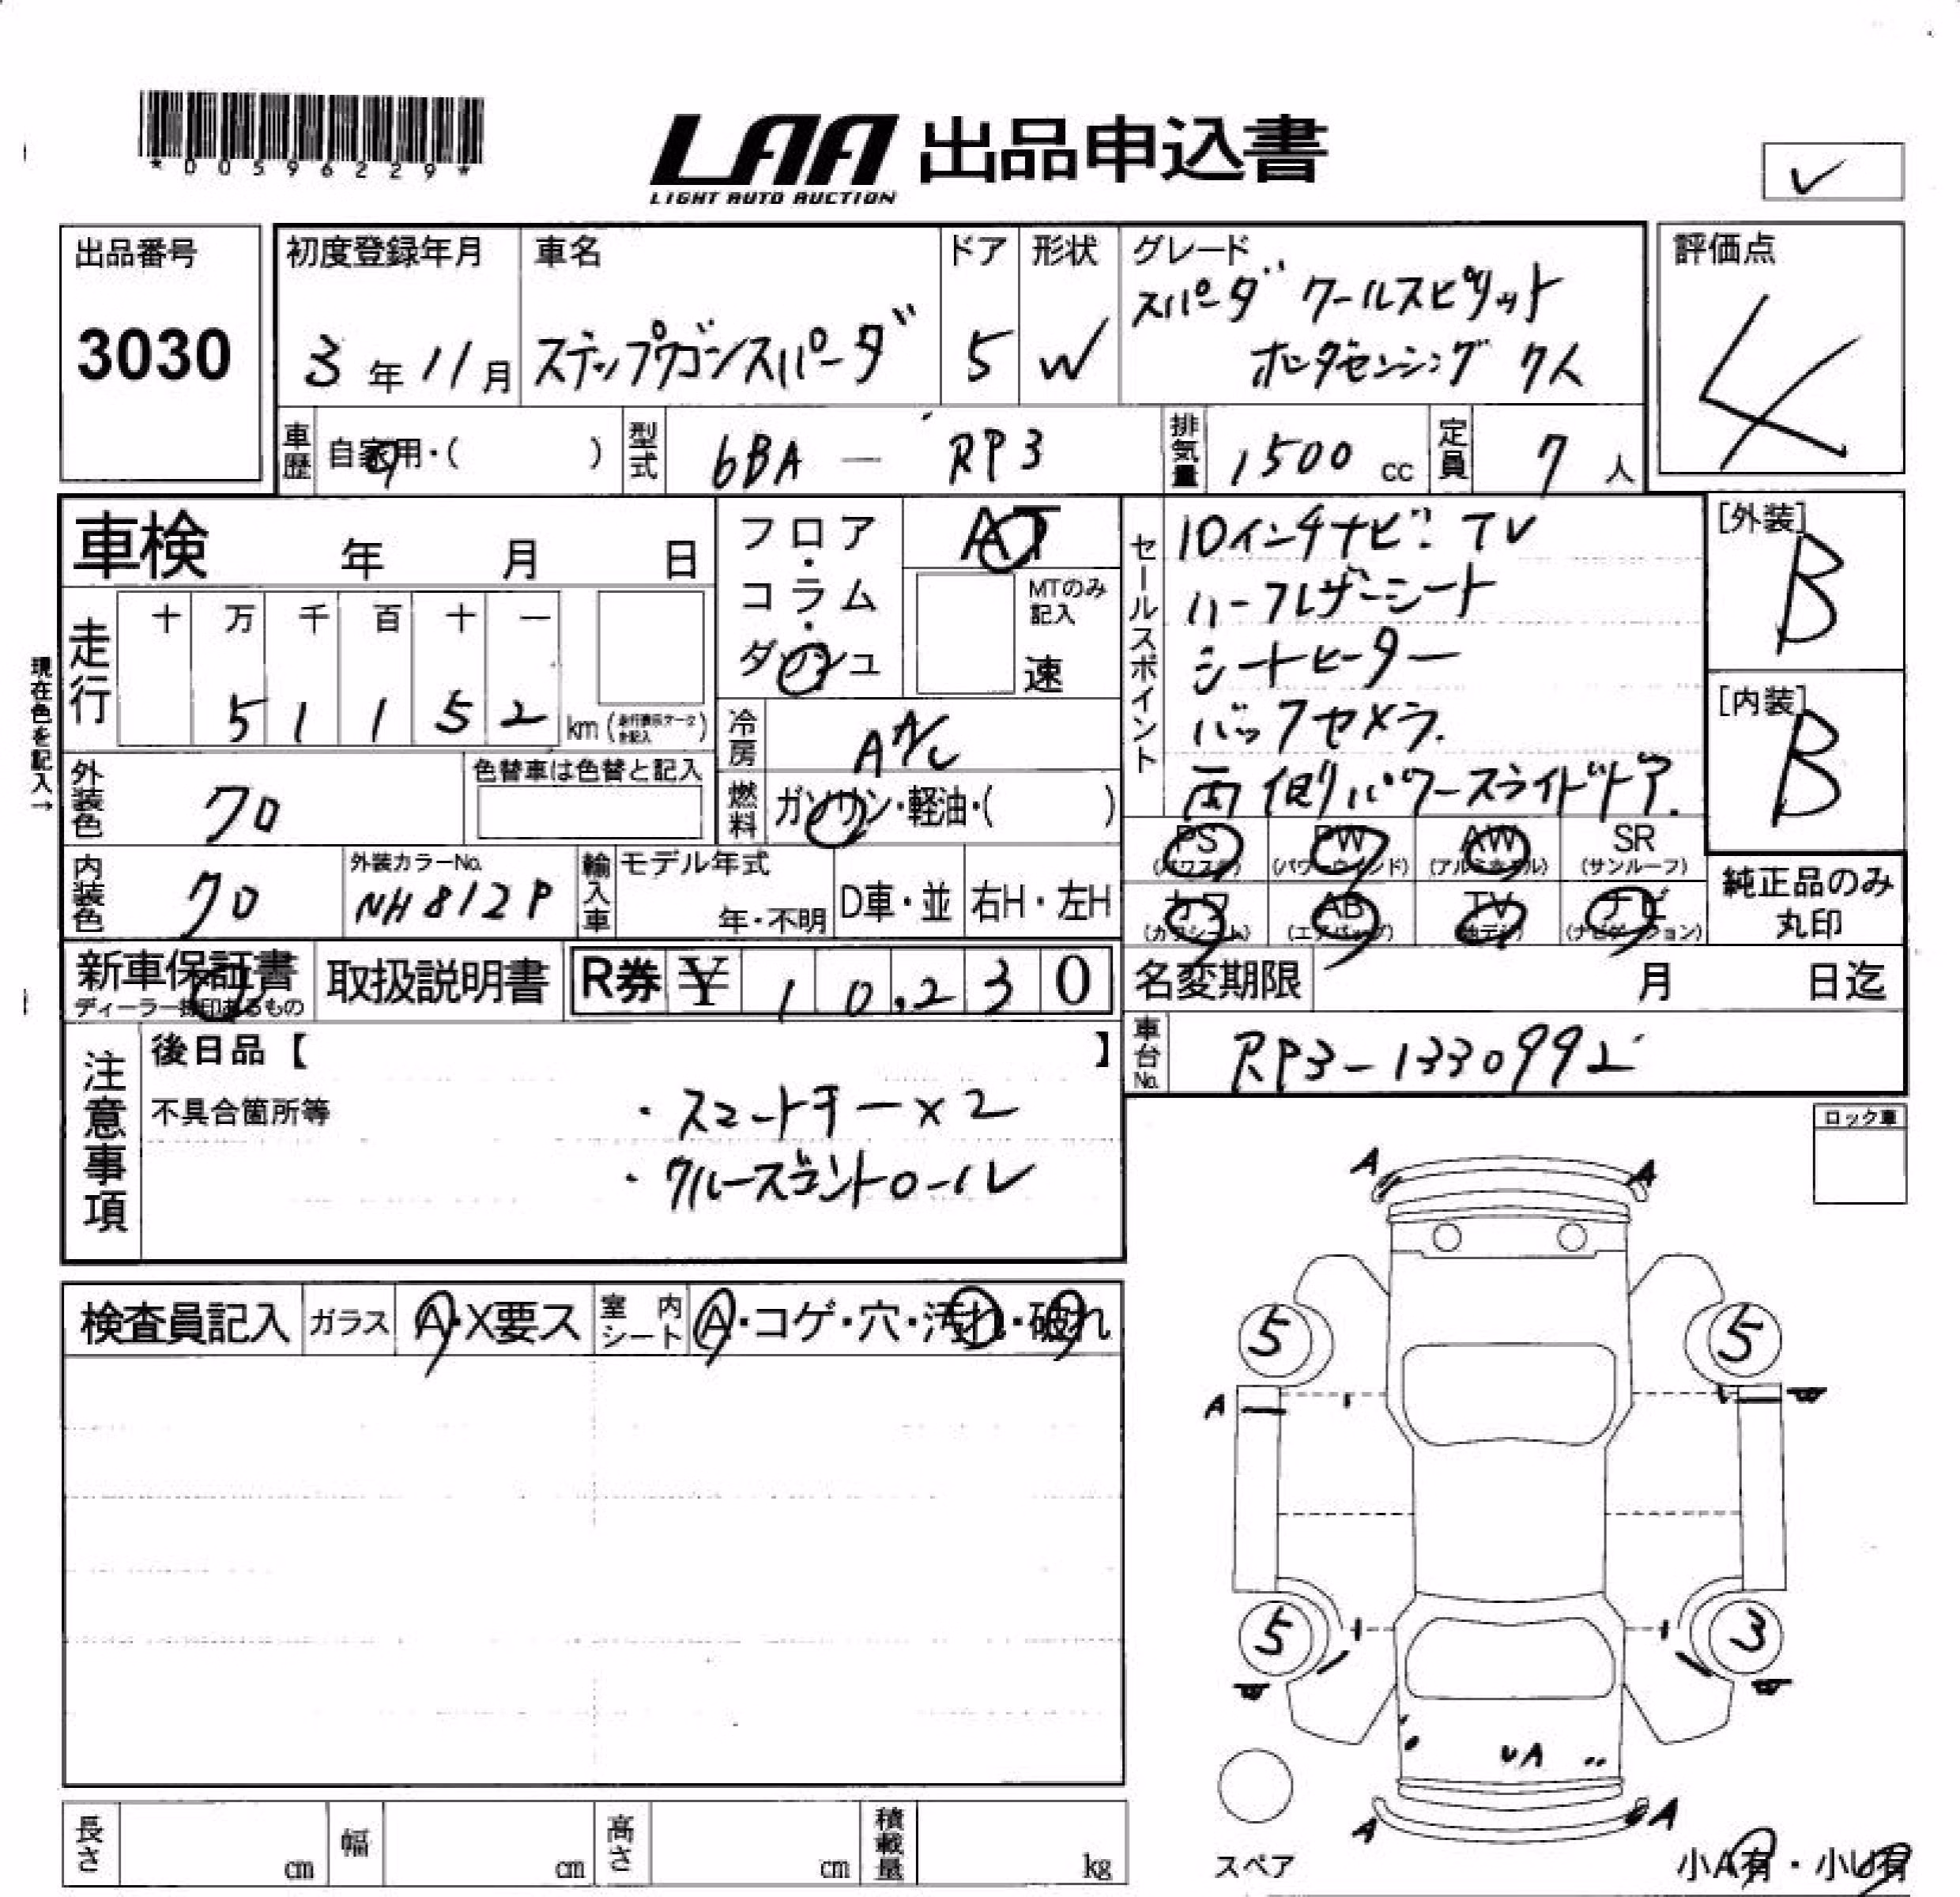 *00596229*
LAA 出品申込書
LIGHT AUTO AUCTION
出品番号
3030
初度登録年月
3年11月
車名
ステップワゴンスパーダ
ドア
5
形状
W
グレード
スパーダ クールスピリット
ホンダセンシング 7人
評価点
4
車歴
自家用・( )
型式
6BA - RP3
排気量
1500 cc
定員
7 人
車検 年 月 日
フロア・コラム・ダッシュ
AT
MTのみ記入
速
セールスポイント
10インチナビ TV
ハーフレザーシート
シートヒーター
バックカメラ
両側パワースライドドア
[外装]
B
[内装]
B
現在色を記入→
走行
十 万 千 百 十 一
5 1 1 5 2 km
冷房
A/C
外装色
クロ
色替車は色替と記入
燃料
ガソリン・軽油・( )
PS (パワステ)
PW (パワーウインド)
AW (アルミホイル)
SR (サンルーフ)
カワ (カワシート)
AB (エアバッグ)
TV (地デジ)
ナビ (ナビゲーション)
純正品のみ
丸印
内装色
クロ
外装カラーNo.
NH812P
輸入車
モデル年式
年・不明
D車・並
右H・左H
新車保証書
ディーラー捺印あるもの
取扱説明書
R券 ¥ 10,230
名変期限 月 日迄
車台No.
RP3-1330992
注意事項
後日品【 】
不具合箇所等
・スマートキー×2
・クルーズコントロール
ロック車
検査員記入
ガラス
A・X要ス
室内シート
A・コゲ・穴・汚れ・破れ
A A
5 5
A
5 3
UA
A A
スペア
小A有・小U有
長さ cm
幅 cm
高さ cm
積載量 kg